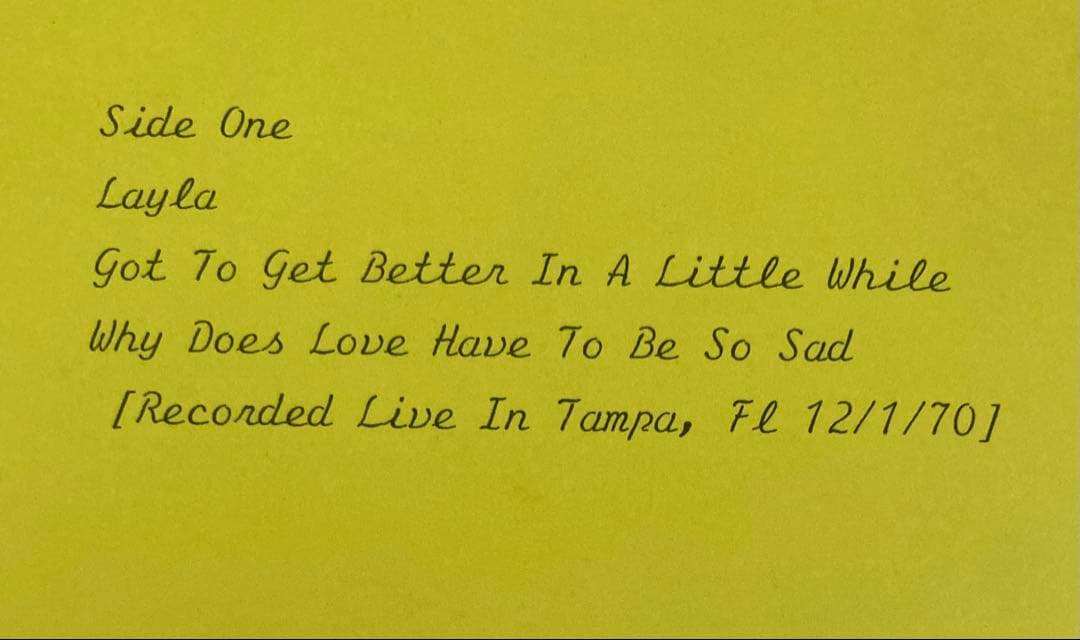 Side One
Layla
Got To Get Better In A Little While
Why Does Love Have To Be So Sad
[Recorded Live In Tampa, Fl 12/1/70]